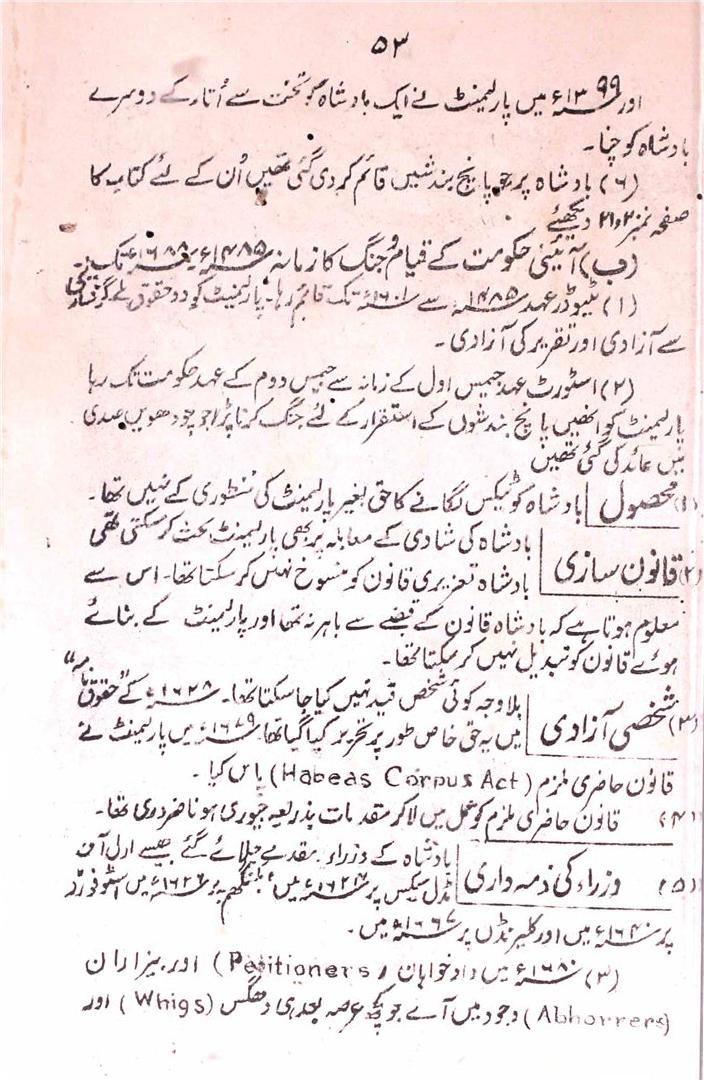 ۵۳
اور ۱۳۹۹ء میں پارلیمنٹ نے ایک بادشاہ کو تخت سے اُتار کے دوسرے
بادشاہ کو چنا۔
(۶) بادشاہ پر جو پانچ بندشیں قائم کر دی گئی تھیں اُن کے لئے کتاب کا
صفحہ نمبر ۲۰ و ۲۱ دیکھئے
(ب) آئینی حکومت کے قیام و جنگ کا زمانہ ۱۴۸۵ء سے ۱۶۸۸ء تک۔
(۱) ٹیوڈر عہد ۱۴۸۵ء سے ۱۶۰۱ء تک قائم رہا۔ پارلیمنٹ کو دو حقوق ملے گرفتاری
سے آزادی اور تقریر کی آزادی۔
(۲) اسٹورٹ عہد جیمس اول کے زمانہ سے جیمس دوم کے عہد حکومت تک رہا
پارلیمنٹ کو انھیں پانچ بندشوں کے استقرار کے لئے جنگ کرنا پڑا جو چودھویں صدی
میں عائد کی گئی تھیں
(۱) محصول بادشاہ کو ٹیکس لگانے کا حق بغیر پارلیمنٹ کی منظوری کے نہیں تھا۔
بادشاہ کی شادی کے معاملہ پر بھی پارلیمنٹ بحث کر سکتی تھی
(۲) قانون سازی بادشاہ تعزیری قانون کو منسوخ نہیں کر سکتا تھا۔ اس سے
معلوم ہوتا ہے کہ بادشاہ قانون کے قبضے سے باہر نہ تھا اور پارلیمنٹ کے بنائے
ہوئے قانون کو تبدیل نہیں کر سکتا تھا۔
بلاوجہ کوئی شخص قید نہیں کیا جا سکتا تھا۔ ۱۶۲۸ء کے "حقوق نامہ"
(۳) شخصی آزادی میں یہ حق خاص طور پر تحریر کیا گیا تھا ۱۶۷۹ء میں پارلیمنٹ نے
قانون حاضری ملزم (Habeas Corpus Act) پاس کیا۔
(۴) قانون حاضری ملزم کو عمل میں لا کر مقدمات بذریعہ جیوری ہونا ضروری تھا۔
بادشاہ کے وزراء پر مقدمے چلائے گئے جیسے ارل آف
(۵) وزراء کی ذمہ داری مڈل سیکس پر ۱۶۲۴ء میں، بکنگھم پر ۱۶۲۶ء میں اسٹرفورڈ
پر ۱۶۴۰ء میں اور کلیرنڈن پر ۱۶۶۷ء میں۔
(۳) ۱۶۸۰ء میں دادخواہان (Petitioners) اور بیزاران
(Abhorrers) وجود میں آئے جو کچھ عرصہ بعد ہی وھگس (Whigs) اور